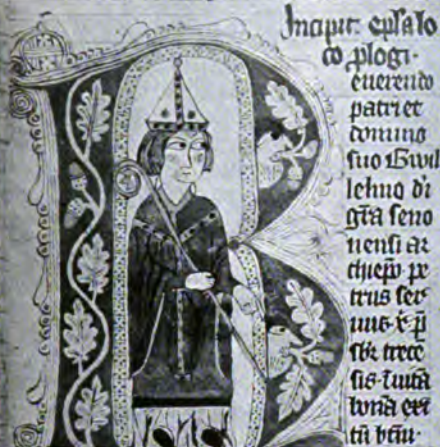 Incipit epl̄a lo
co plogi·
R
euerendo
patri et
domino
suo Guil
lelmo di
gr̄a seno
nensi ar
chiep̄o pe
trus ser
uus x̄ p̄
sbr̄ trecē
sis uitā
bonā
tū btm̄·